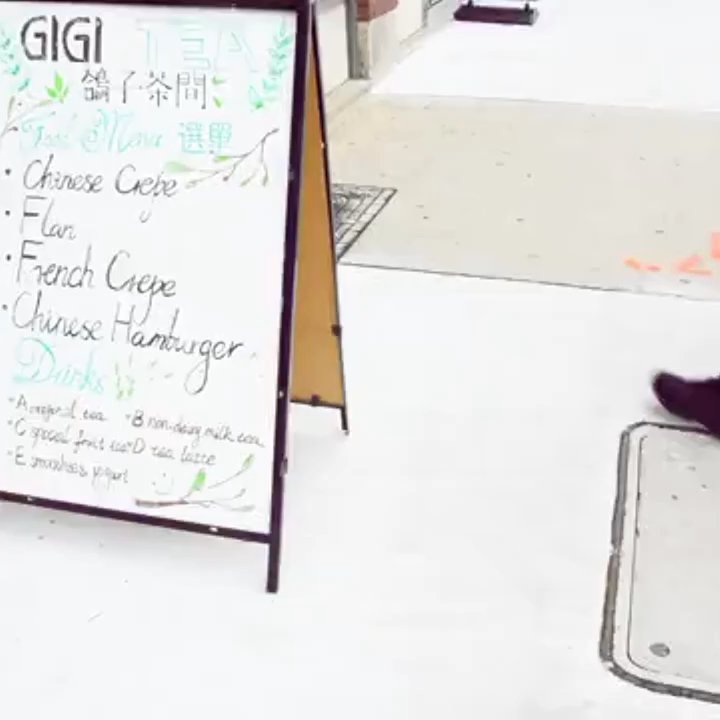 GIGI TEA
鴿子茶間
Food Menu 選單
• Chinese Crepe
• Flan
• French Crepe
• Chinese Hamburger
Drinks
• A original tea • B non-dairy milk tea
• C special fruit tea • D tea latte
• E smoothies yogurt